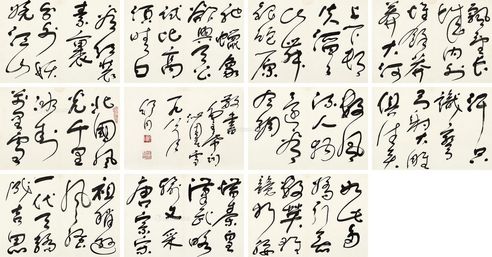 北国风
光千里
冰封
万里雪
飘望长
城内外
惟余莽
莽大河
上下顿
失滔滔
山舞
银蛇原
驰蜡象
欲与天公
试比高
须晴日
看红装
素裹
分外妖
娆江山
如此多
娇引无
数英雄
竞折腰
惜秦皇
汉武略
输文采
唐宗宋
祖稍逊
风骚
一代天骄
成吉思
汗只
识弯
弓射大雕
俱往矣
数风
流人物
还看
今朝
敬书
毛主席词
沁园春雪
舒同